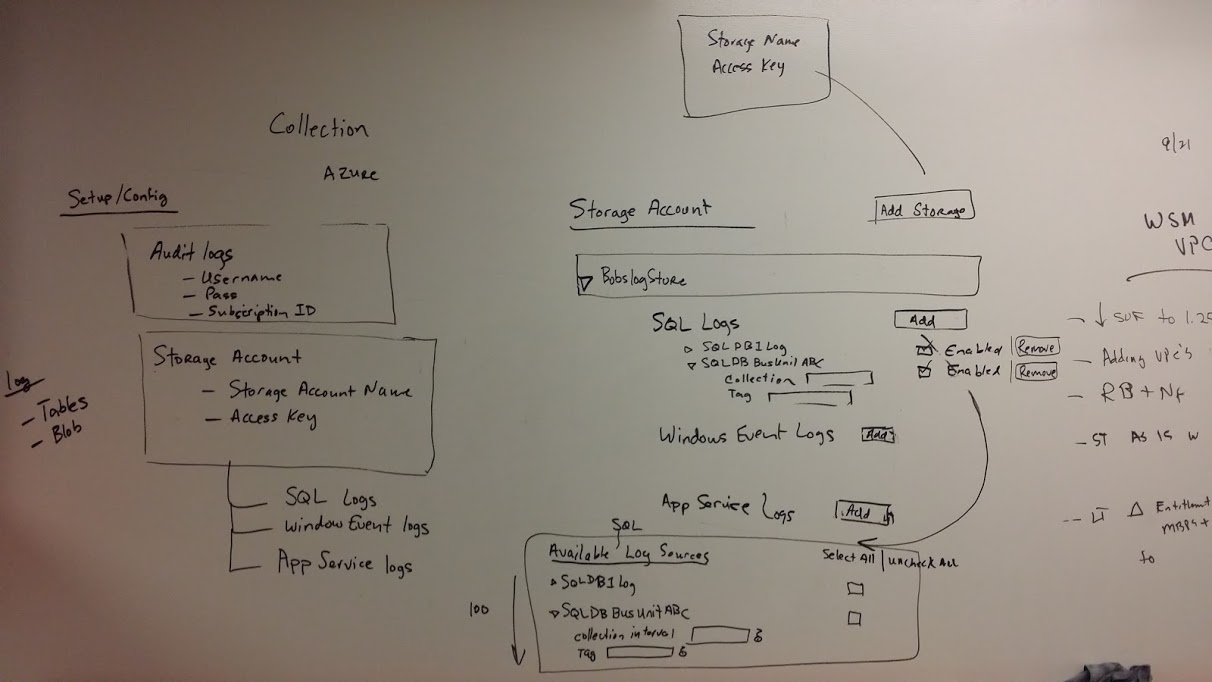 Storage Name
Access Key
Collection
AZURE
Setup/Config
Audit logs
- Username
- Pass
- Subscription ID
Storage Account
- Storage Account Name
- Access Key
log
- Tables
- Blob
SQL Logs
Window Event logs
App Service logs
Storage Account
Add Storage
BobslogStore
SQL Logs
Add
SQLDB1Log
Enabled
Remove
SQLDB BusUnit ABC
Enabled
Remove
Collection
Tag
Windows Event Logs
Add
App Service Logs
Add
SQL
Available Log Sources
Select All | Uncheck All
SQLDB1Log
SQLDB BusUnit ABC
collection interval
Tag
100
9/21
WSM
VPC
to 1.25
- Adding VPC's
- RB +
- ST AS IS W
Δ Entitlment
MBPS +
to